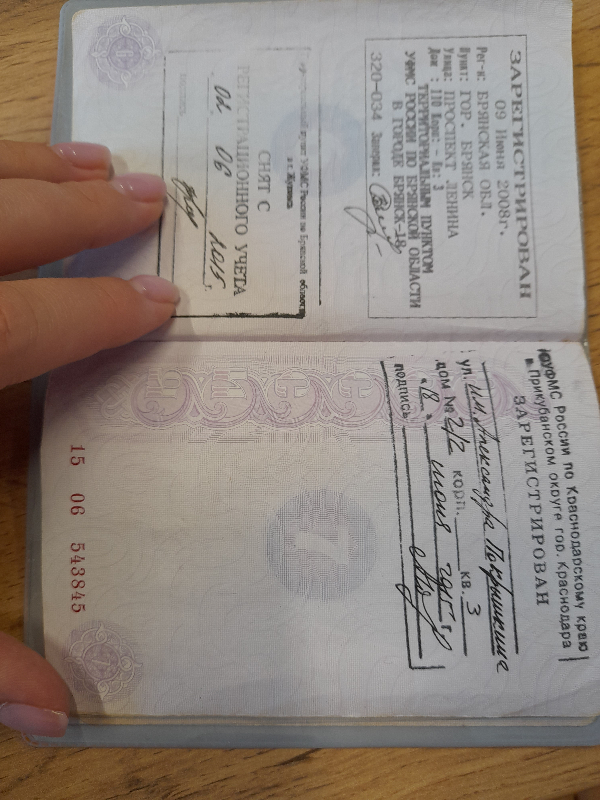 ЗАРЕГИСТРИРОВАН
09 Июня 2008г.
Рег-н: БРЯНСКАЯ ОБЛ.
Пункт: ГОР. БРЯНСК
Улица: ПРОСПЕКТ ЛЕНИНА
Дом : 110 Корп:- Кв: 3
ТЕРРИТОРИАЛЬНЫМ ПУНКТОМ
УФМС РОССИИ ПО БРЯНСКОЙ ОБЛАСТИ
В ГОРОДЕ БРЯНСК-18,
320-034 Заверил:
пункт УФМС России по Брянской области
в г. Жуковка
СНЯТ С
РЕГИСТРАЦИОННОГО УЧЕТА
02 06 2015 г.
6
ОУФМС России по Краснодарскому краю
в Прикубанском округе гор. Краснодара
ЗАРЕГИСТРИРОВАН
ул. им. Александра Покрышкина
дом № 2/2 корп. кв. 3
"18" июня 2015 г
подпись
7
15 06 543845
7